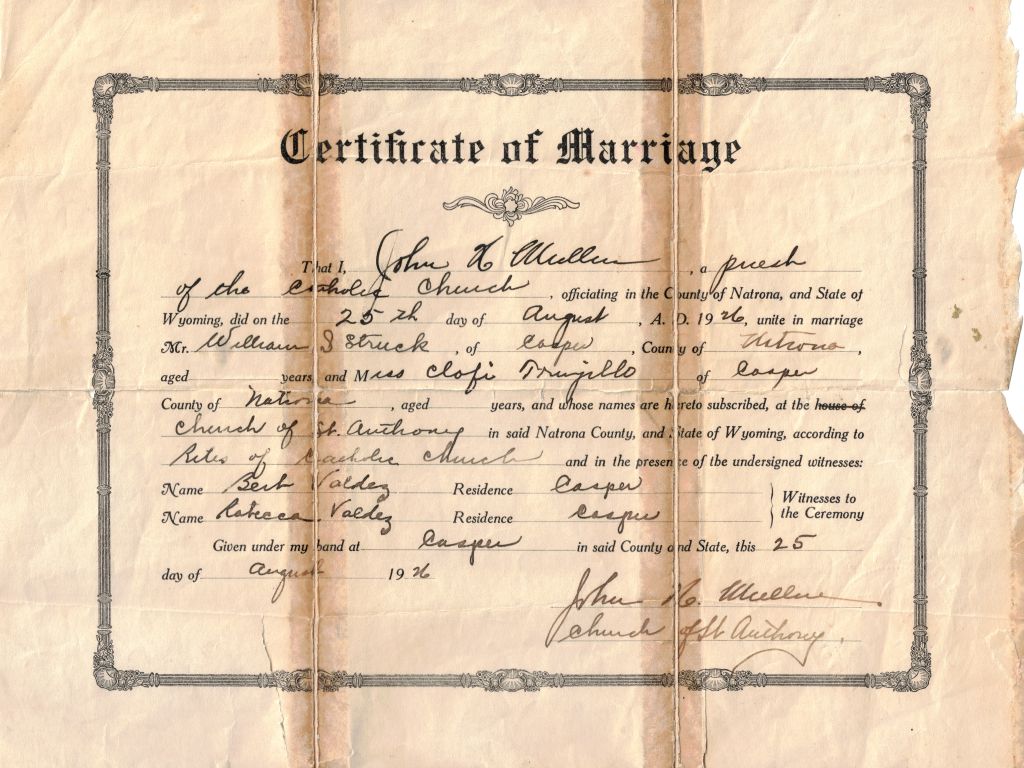 Certificate of Marriage
That I, John H Mullin, a priest
of the Catholic Church, officiating in the County of Natrona, and State of
Wyoming, did on the 25th day of August, A. D. 1926, unite in marriage
Mr. William S Struck, of Casper, County of Natrona,
aged years, and Miss Clofi Trujillo of Casper
County of Natrona, aged years, and whose names are hereto subscribed, at the house of
Church of St. Anthony in said Natrona County, and State of Wyoming, according to
Rites of Catholic Church and in the presence of the undersigned witnesses:
Name Bert Valdez Residence Casper
Name Rebecca Valdez Residence Casper
Witnesses to
the Ceremony
Given under my hand at Casper in said County and State, this 25
day of August 1926
John H. Mullin
Church of St Anthony.